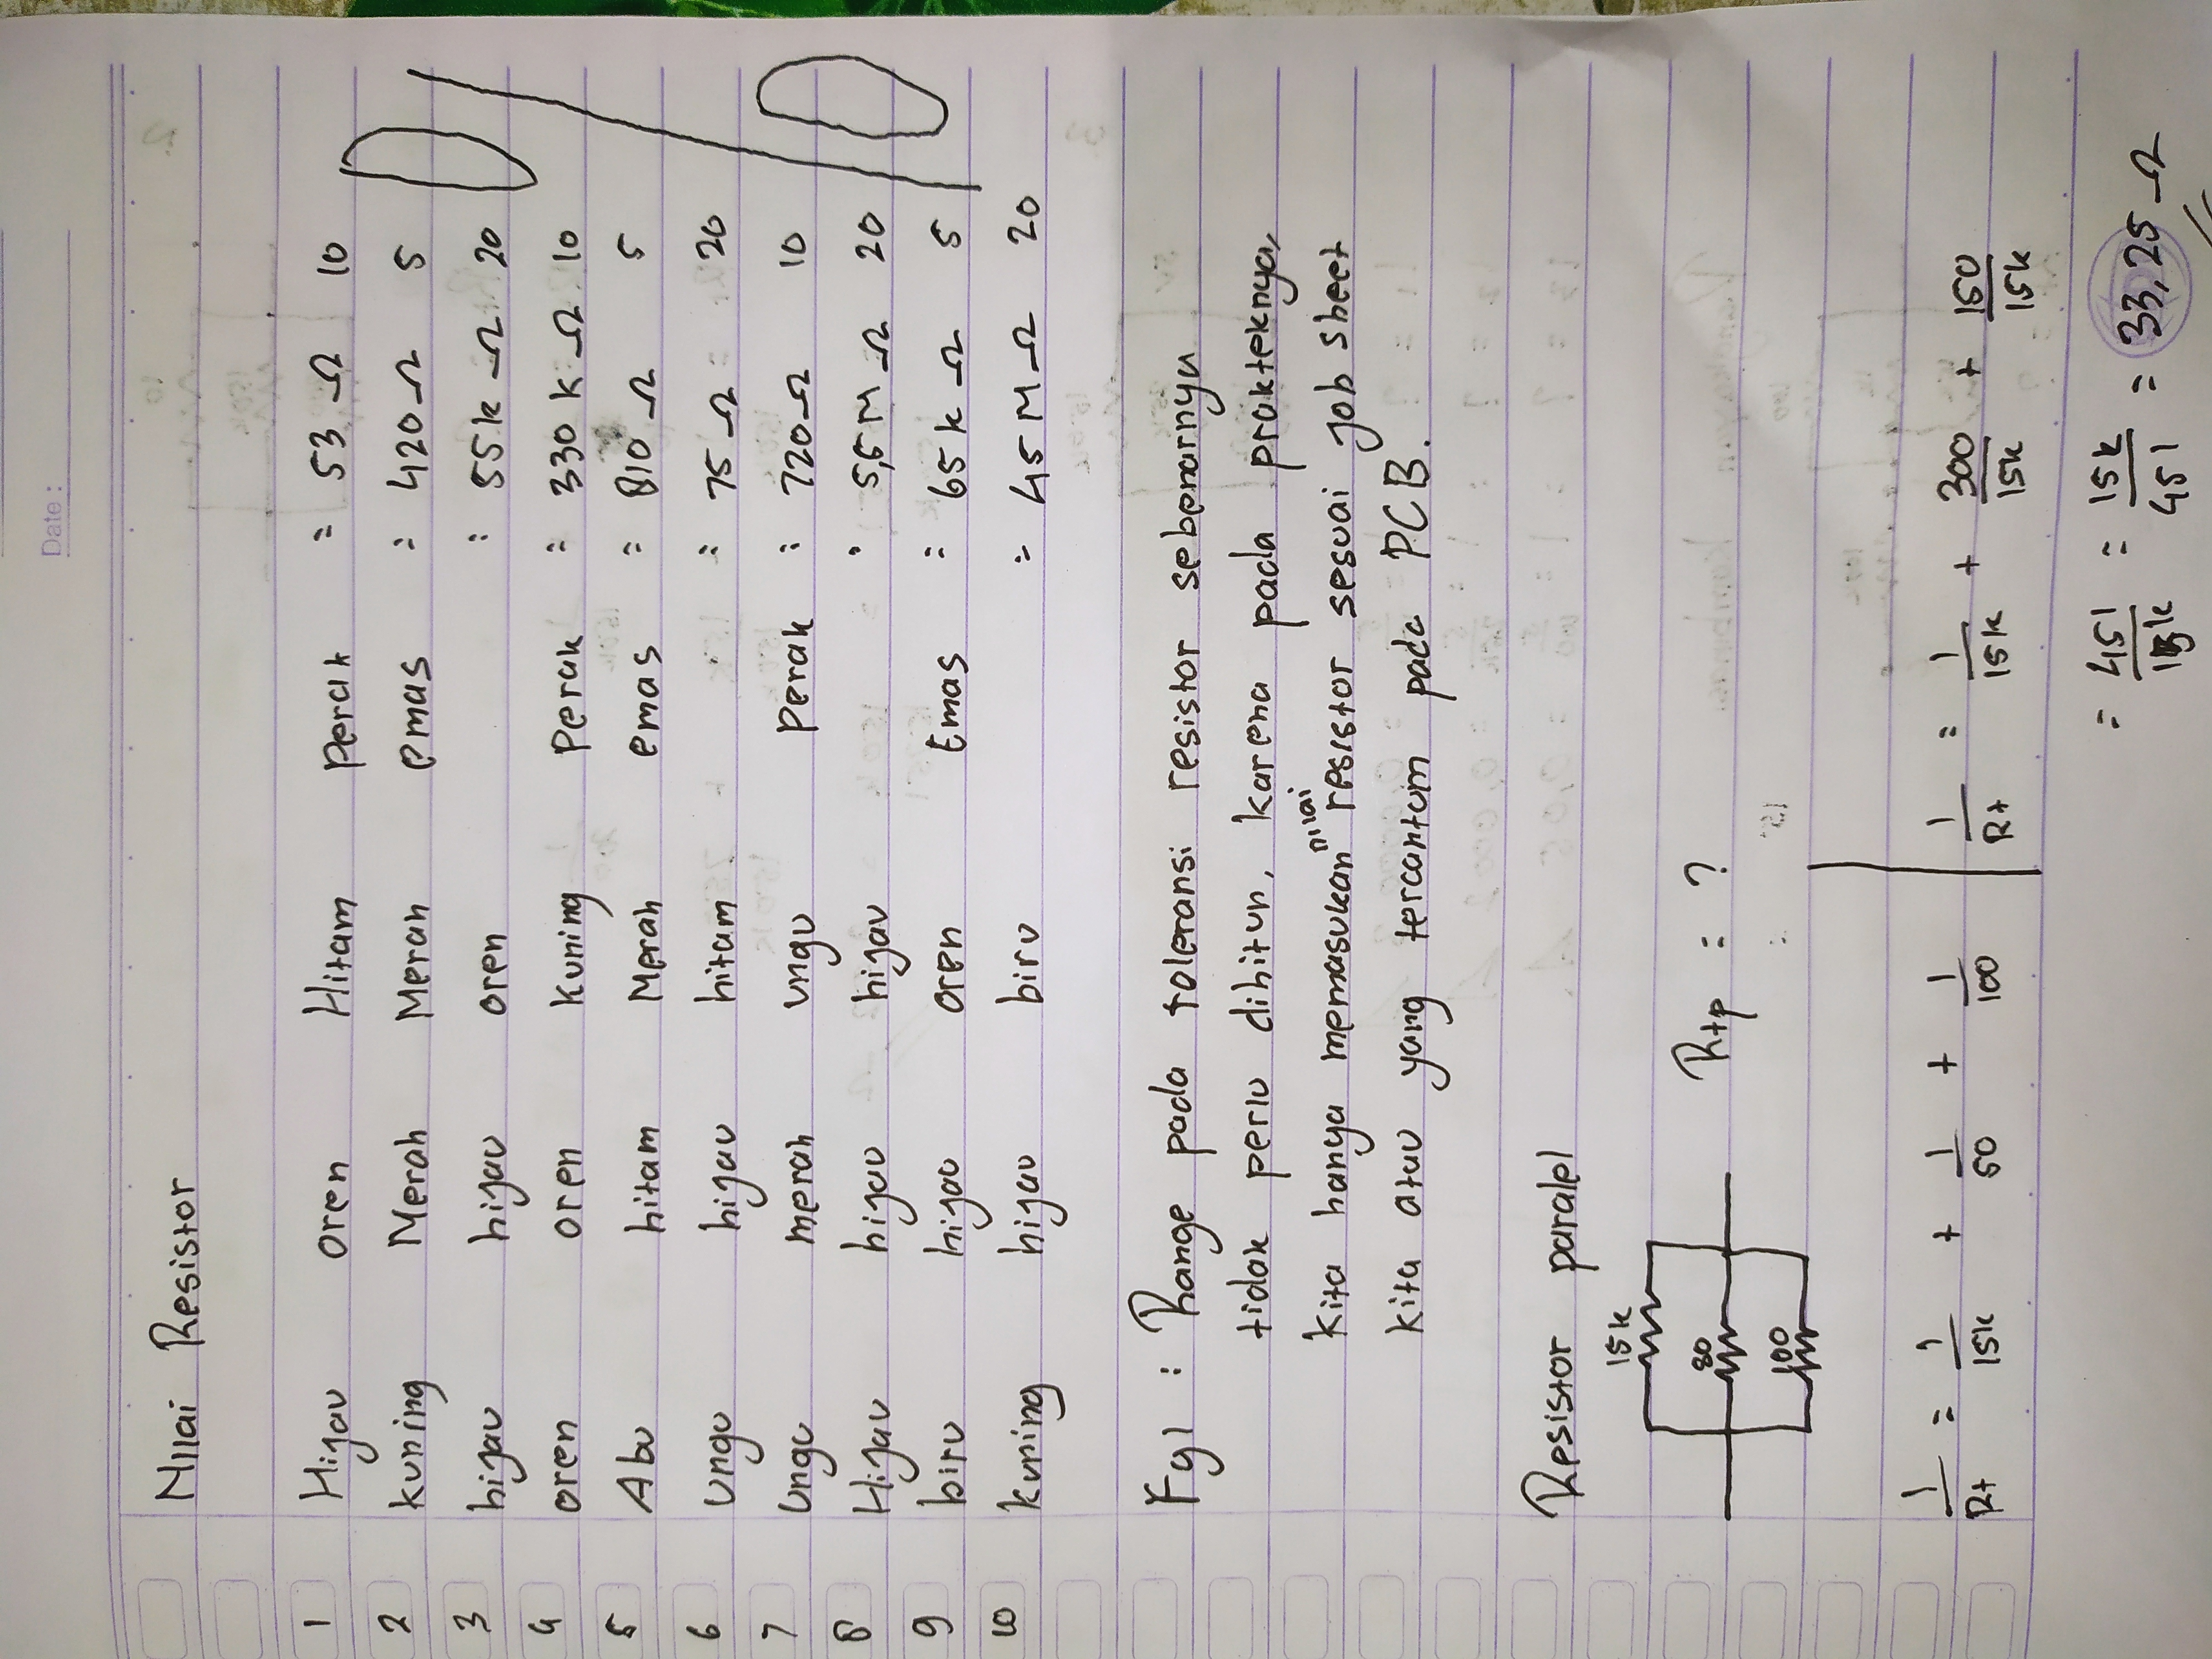 Date:
Nilai Resistor
1 Hijau oren Hitam perak = 53 Ω 10
2 kuning Merah Merah emas = 420 Ω 5
3 hijau hijau oren = 55k Ω 20
4 oren oren kuning perak = 330 k Ω 10
5 Abu hitam Merah emas = 810 Ω 5
6 Ungu hijau hitam = 75 Ω 20
7 Ungu merah ungu perak = 720 Ω 10
8 Hijau hijau hijau = 5,5 M Ω 20
9 biru hijau oren Emas = 65 k Ω 5
10 kuning hijau biru = 45 M Ω 20
Fyi : Range pada toleransi resistor sebenarnya
tidak perlu dihitun, karena pada prakteknya,
kita hanya memasukan nilai resistor sesuai job sheet
kita atau yang tercantum pada PCB.
Resistor paralel
15k
100
Rtp = ?
1/Rt = 1/15k + 1/50 + 1/100
1/Rt = 1/15k + 300/15k + 150/15k
= 451/15k = 15k/451 = 33,25 Ω